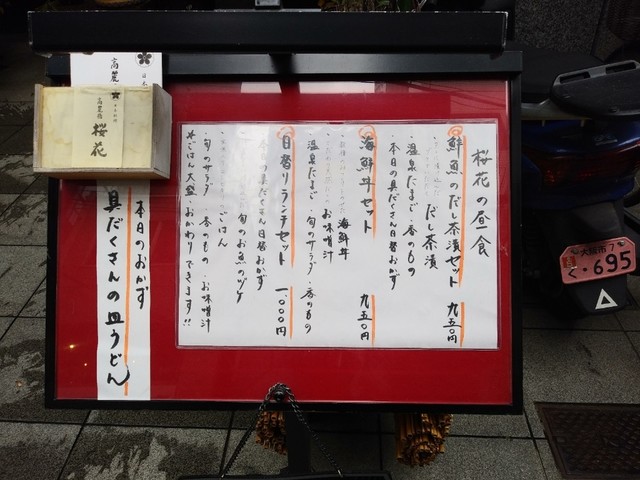 桜花の昼食
鮮魚のだし茶漬セット 九五〇円
だし茶漬
・温泉たまご・香のもの
・本日の具だくさん日替おかず
海鮮丼セット 九五〇円
海鮮丼
お味噌汁
温泉たまご・旬のサラダ・香のもの
日替りランチセット 一、〇〇〇円
本日の具だくさん日替おかず
旬のお魚のヅケ
ごはん
・旬のサラダ・香のもの・お味噌汁
＊ごはん大盛・おかわりできます!!
本日のおかず
具だくさんの皿うどん
高麗
高麗橋
桜花
大阪市
く・695